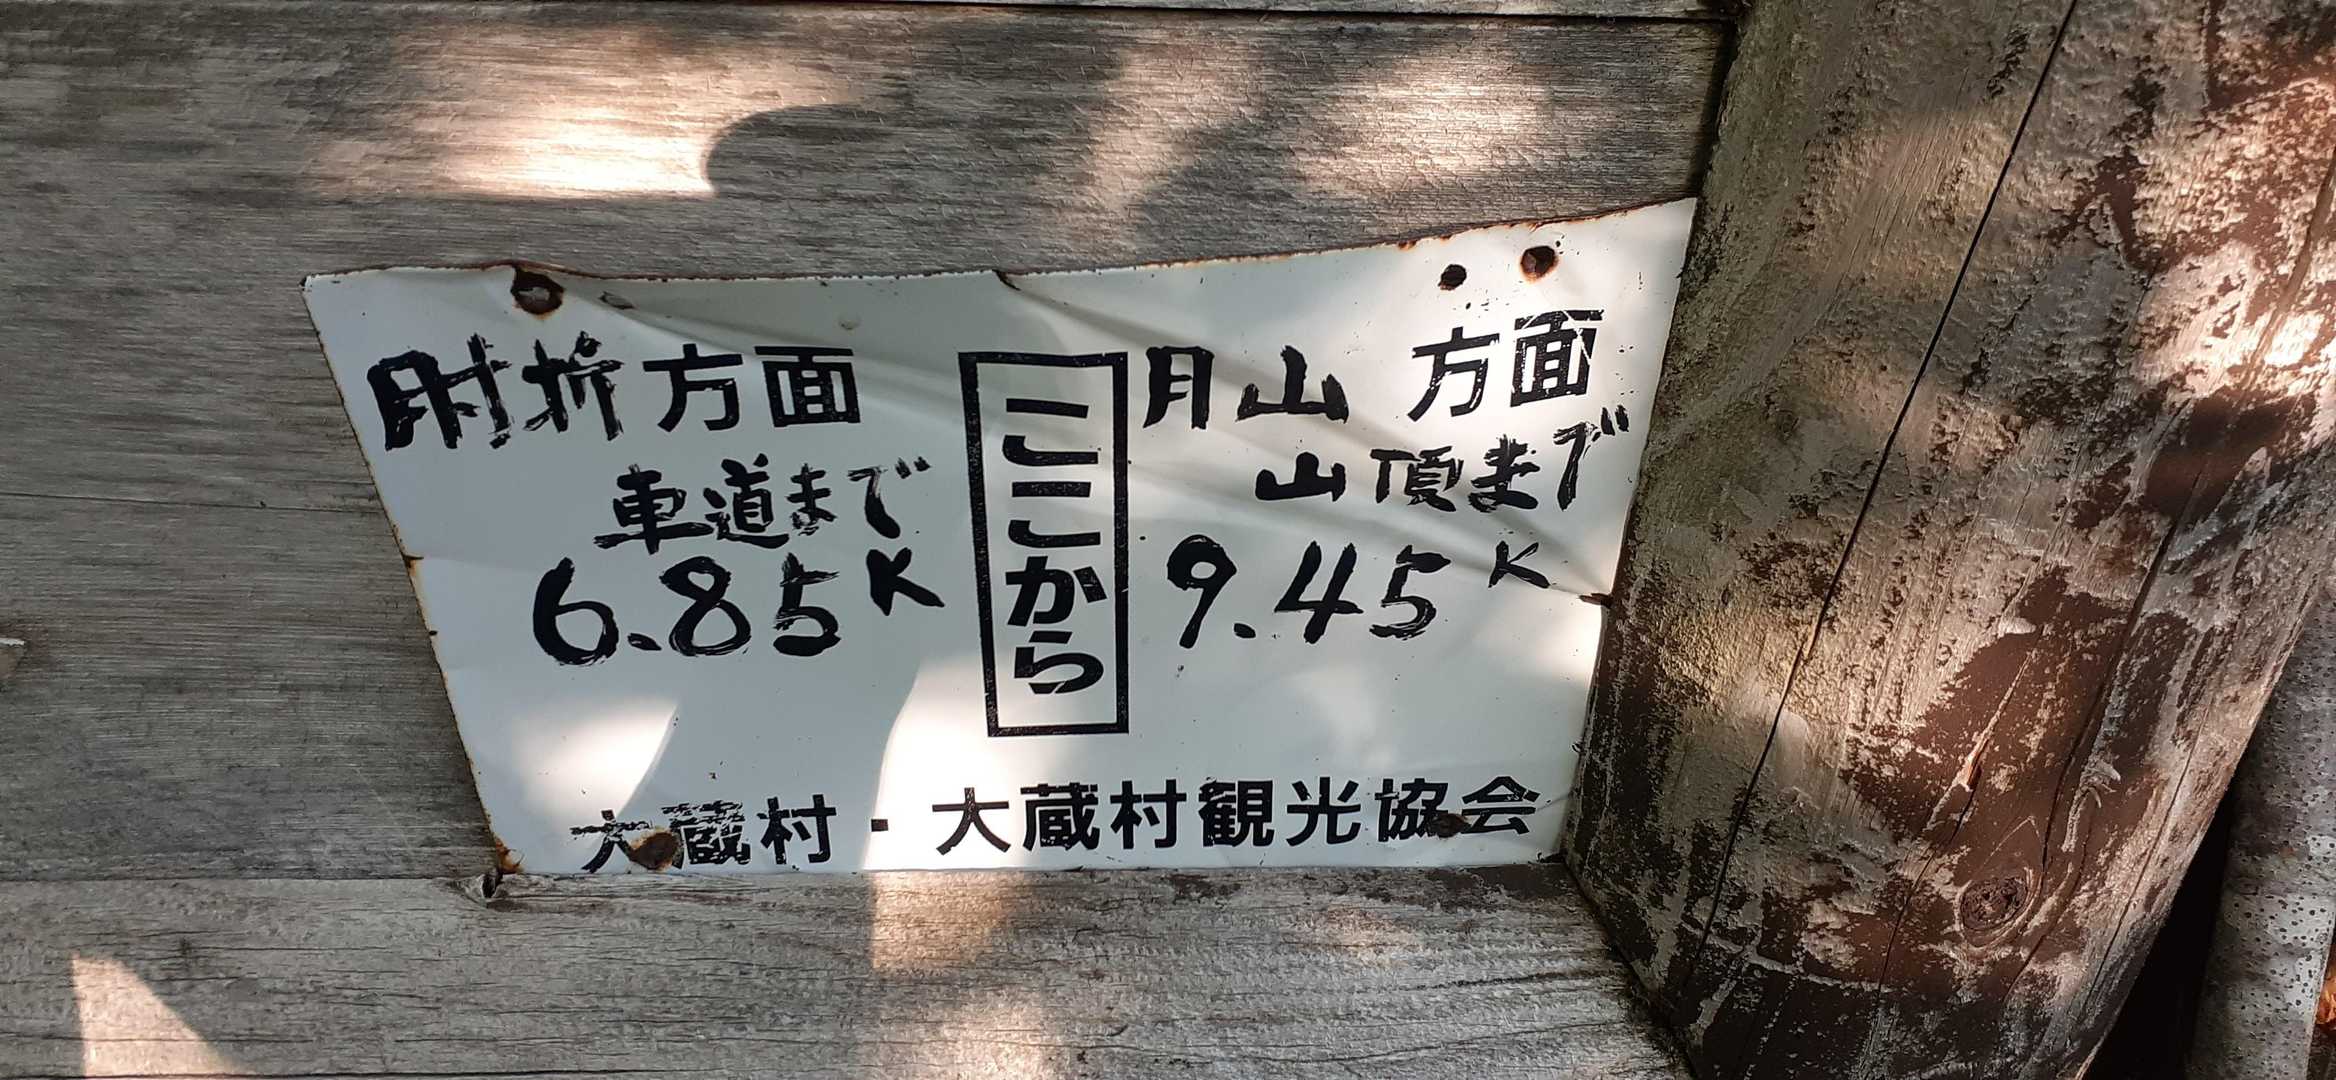 肘折方面
車道まで
6.85K
ここから
月山方面
山頂まで
9.45K
大蔵村・大蔵村観光協会